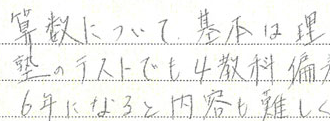 算数について、基本は理
塾のテストでも4教科偏差
6年になると内容も難しく